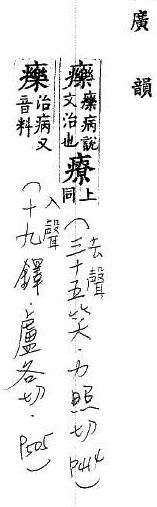 廣韻
𤻲𤻲病說文治也療上同(去聲三十五笑·力照切P414)
𤻲治病又音料(入聲十九鐸·盧各切·P505)